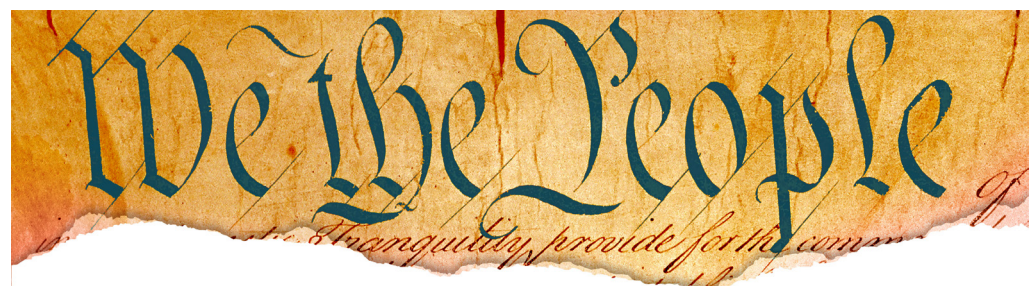 We the People
Tranquility, provide for the